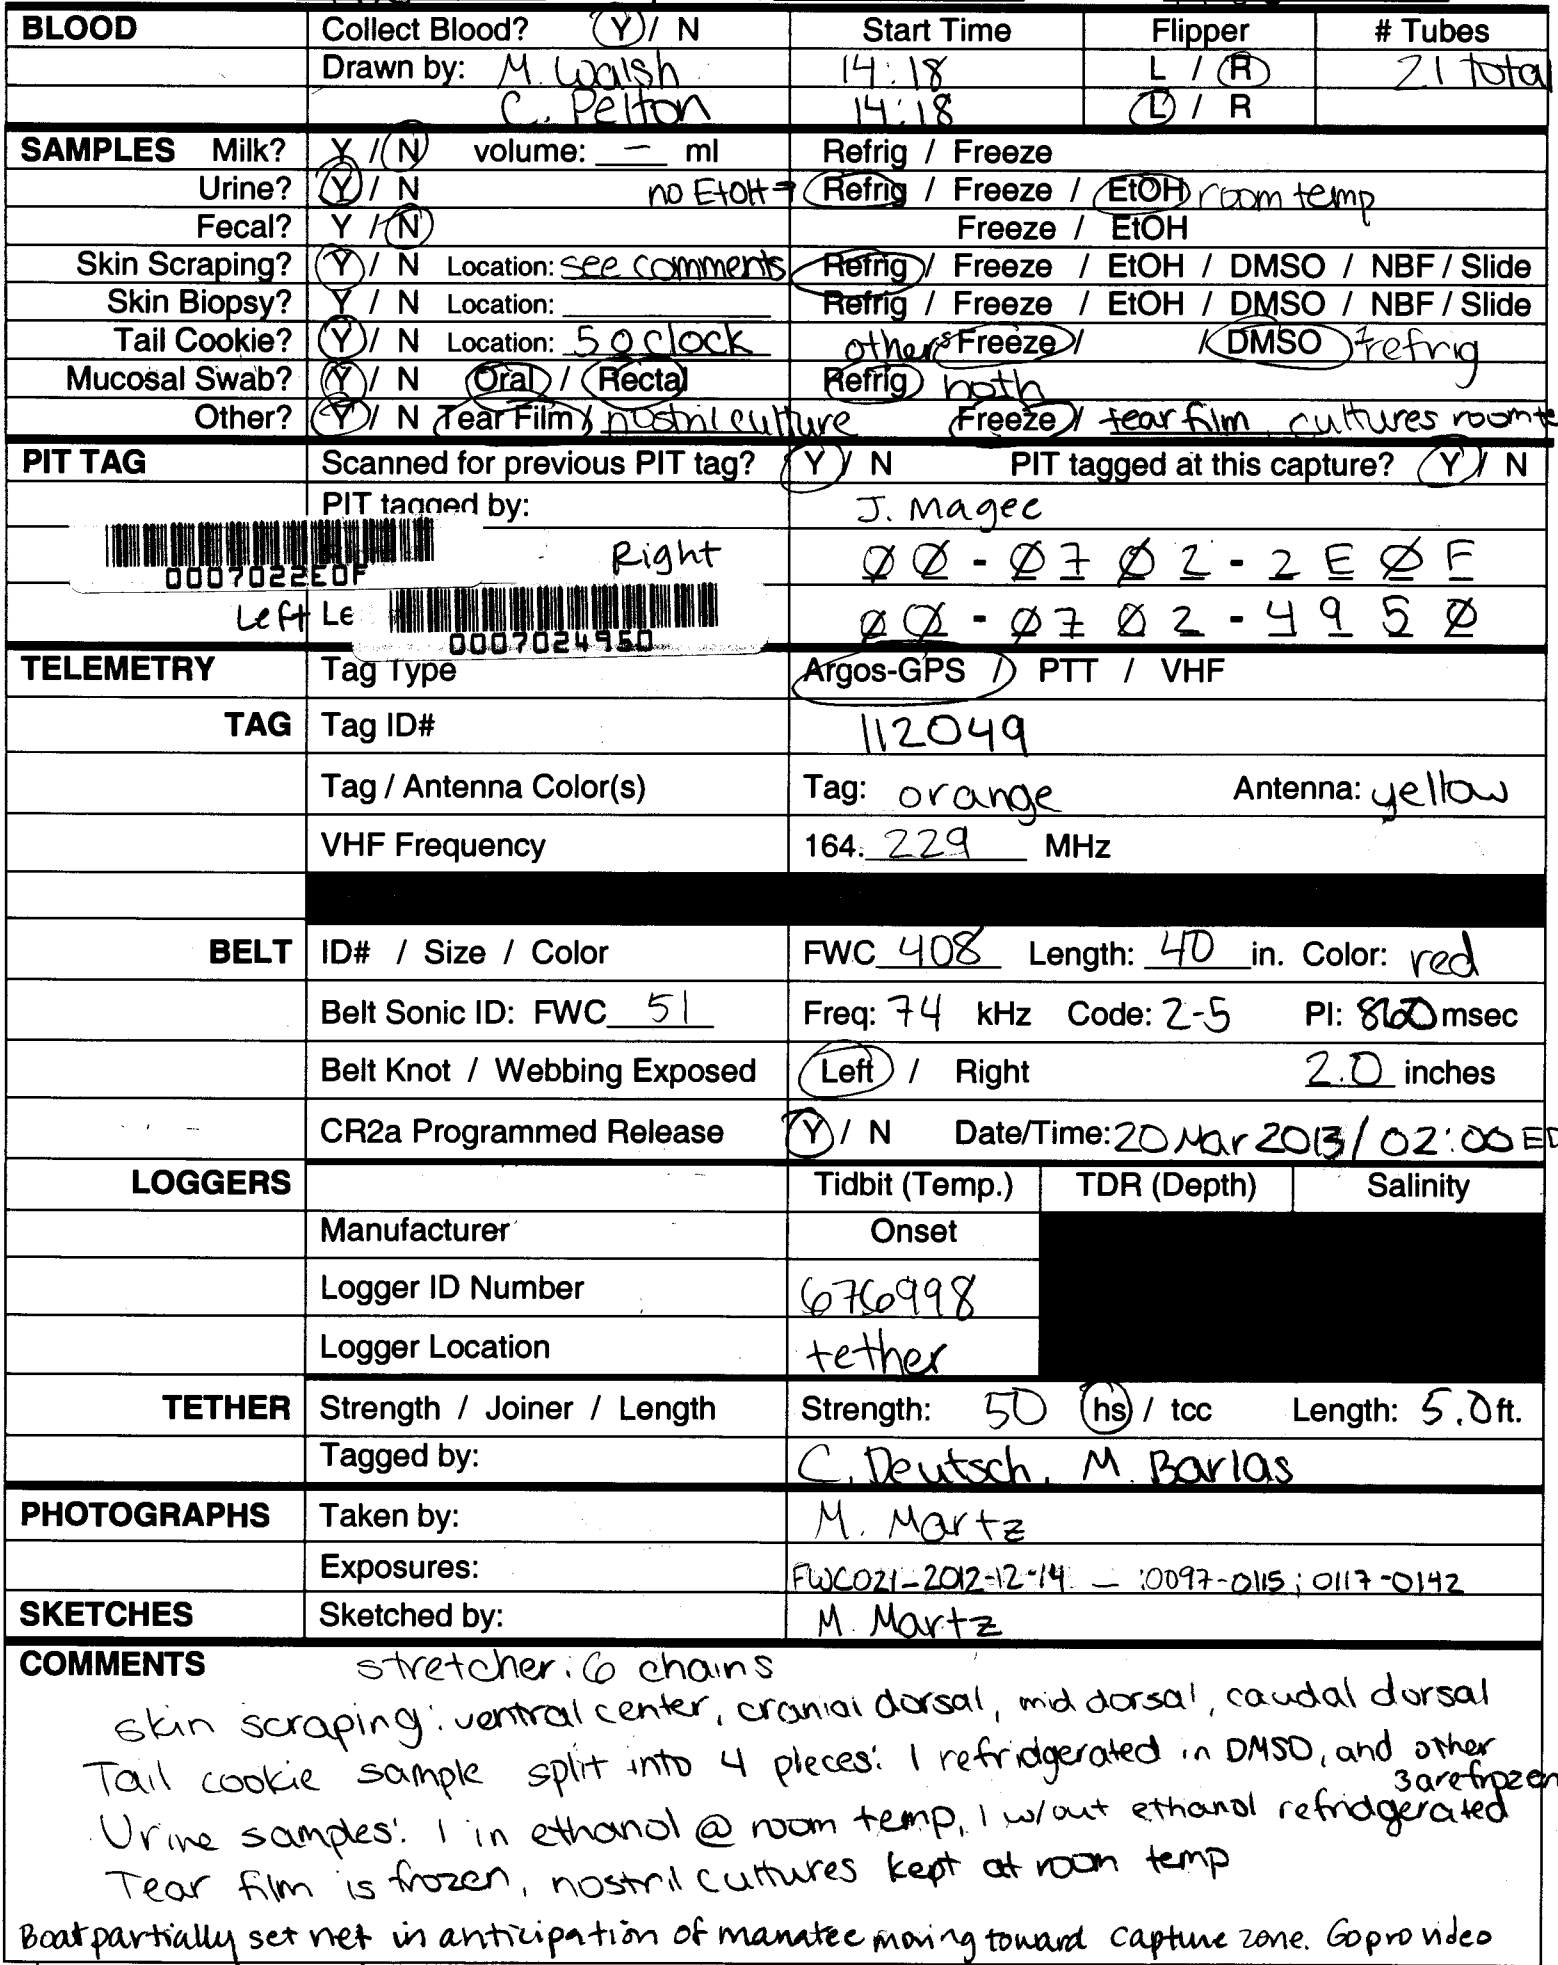 BLOOD Collect Blood? Y / N Start Time Flipper # Tubes
Drawn by: M. Walsh 14:18 L / R 21 total
C. Pelton 14:18 L / R
SAMPLES Milk? Y / N volume: — ml Refrig / Freeze
Urine? Y / N no EtOH → Refrig / Freeze / EtOH room temp
Fecal? Y / N Freeze / EtOH
Skin Scraping? Y / N Location: see comments Refrig / Freeze / EtOH / DMSO / NBF / Slide
Skin Biopsy? Y / N Location: Refrig / Freeze / EtOH / DMSO / NBF / Slide
Tail Cookie? Y / N Location: 5 o clock others Freeze / / DMSO → refrig
Mucosal Swab? Y / N Oral / Rectal Refrig both
Other? Y / N Tear Film / nostril culture Freeze / tear film, cultures room te
PIT TAG Scanned for previous PIT tag? Y / N PIT tagged at this capture? Y / N
PIT tagged by: J. Magee
0007022E0F Right ØØ-Ø7Ø2-2EØF
Left Le 0007024950 ØØ-Ø7Ø2-495Ø
TELEMETRY Tag Type Argos-GPS / PTT / VHF
TAG Tag ID# 112049
Tag / Antenna Color(s) Tag: orange Antenna: yellow
VHF Frequency 164. 229 MHz
BELT ID# / Size / Color FWC 408 Length: 40 in. Color: red
Belt Sonic ID: FWC 51 Freq: 74 kHz Code: 2-5 PI: 860 msec
Belt Knot / Webbing Exposed Left / Right 2.0 inches
CR2a Programmed Release Y / N Date/Time: 20 Mar 2013 / 02:00 ED
LOGGERS Tidbit (Temp.) TDR (Depth) Salinity
Manufacturer Onset
Logger ID Number 676998
Logger Location tether
TETHER Strength / Joiner / Length Strength: 50 hs / tcc Length: 5.0 ft.
Tagged by: C. Deutsch, M. Barlas
PHOTOGRAPHS Taken by: M. Martz
Exposures: FWC021-2012-12-14 — 0097-0115; 0117-0142
SKETCHES Sketched by: M. Martz
COMMENTS stretcher: 6 chains
skin scraping: ventral center, cranial dorsal, mid dorsal, caudal dorsal
Tail cookie sample split into 4 pieces: 1 refridgerated in DMSO, and other
3 are frozen
Urine samples: 1 in ethanol @ room temp, 1 w/out ethanol refridgerated
Tear film is frozen, nostril cultures kept at room temp
Boat partially set net in anticipation of manatee moving toward capture zone. Gopro video